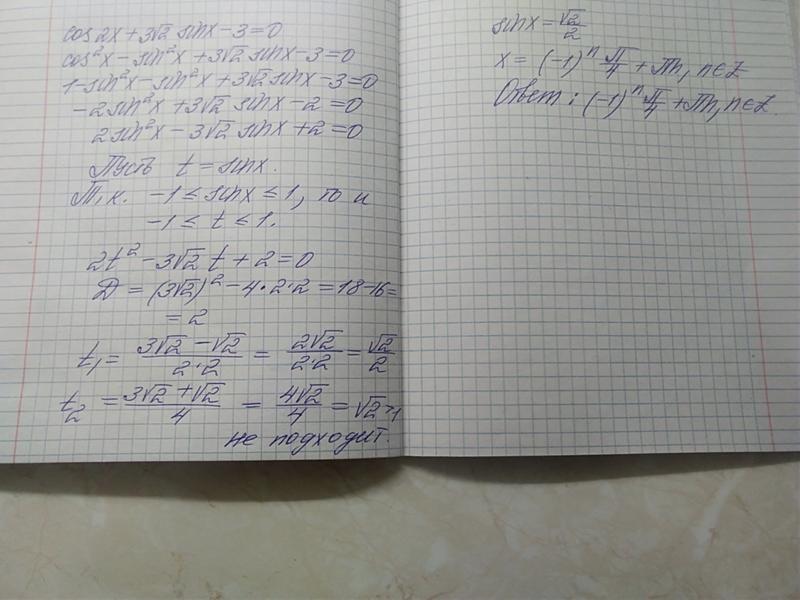 cos2x + 3√2 sinx - 3 = 0
cos²x - sin²x + 3√2 sinx - 3 = 0
1 - sin²x - sin²x + 3√2 sinx - 3 = 0
- 2sin²x + 3√2 sinx - 2 = 0
2sin²x - 3√2 sinx + 2 = 0
Пусть t = sinx.
Т.к. -1 ≤ sinx ≤ 1, то и
-1 ≤ t ≤ 1.
2t² - 3√2 t + 2 = 0
D = (3√2)² - 4·2·2 = 18 - 16 =
= 2
t₁ = (3√2 - √2)/(2·2) = 2√2/(2·2) = √2/2
t₂ = (3√2 + √2)/4 = 4√2/4 = √2 > 1
не подходит.
sinx = √2/2
x = (-1)ⁿ π/4 + πn, n∈Z
Ответ: (-1)ⁿ π/4 + πn, n∈Z.